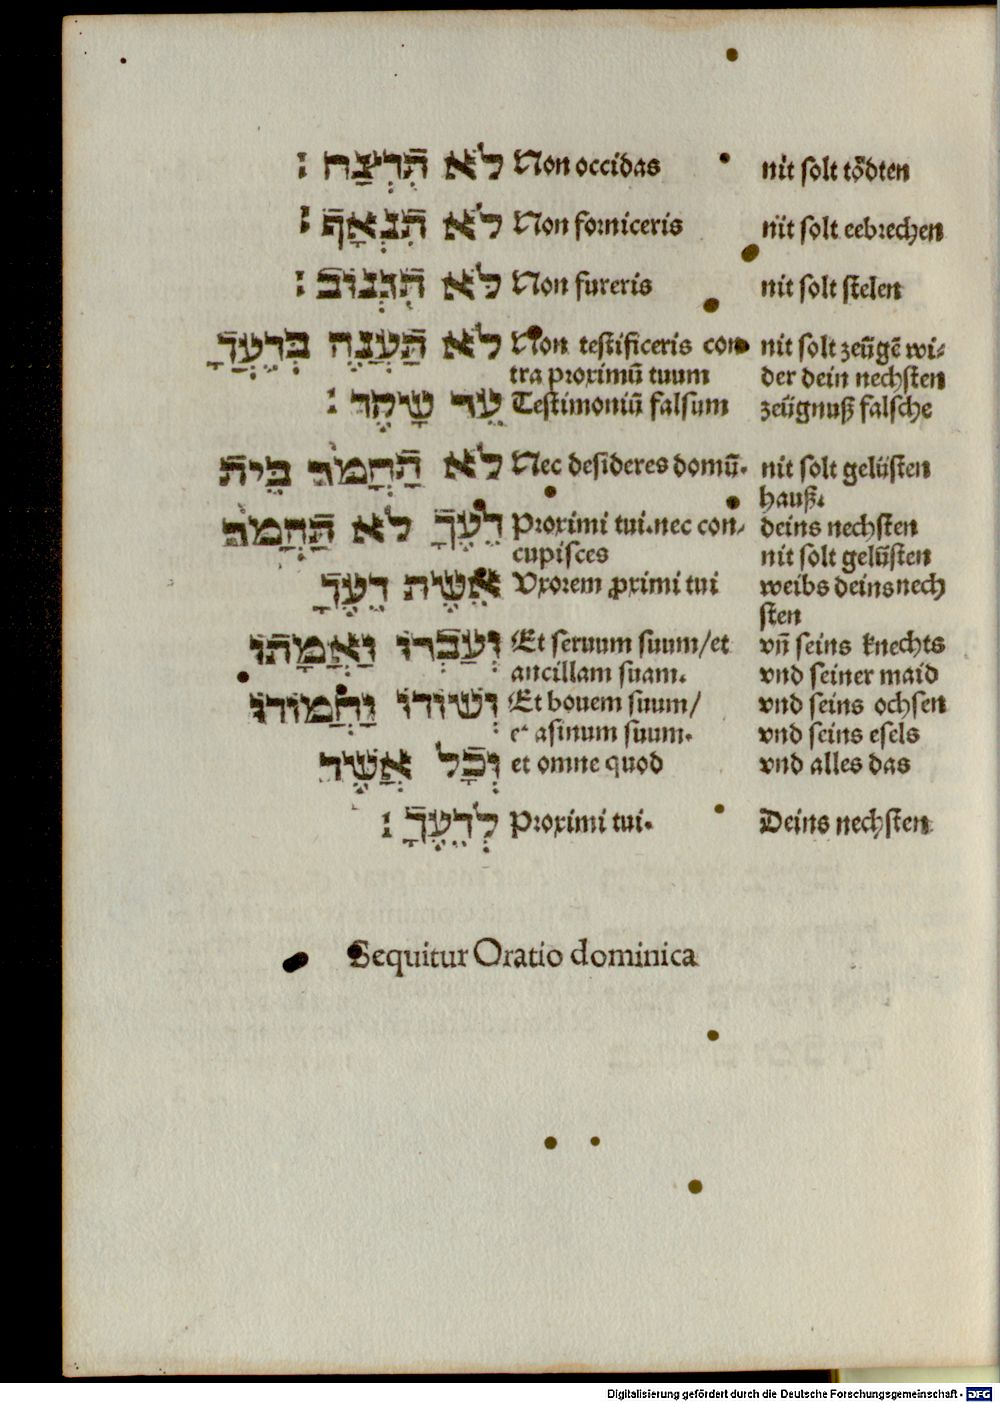 לֹא תִּרְצַח׃ Non occidas nit solt tödten
לֹא תִּנְאָף׃ Non forniceris nit solt eebrechen
לֹא תִּגְנוֹב׃ Non fureris nit solt stelen
לֹא תַּעֲנֶה בְּרֵעֲךָ Non testificeris con nit solt zeügē wi-
tra proximū tuum der dein nechsten
עֵד שָׁקֶר׃ Testimoniū falsum zeügnuß falsche
לֹא תַּחֲמֹד בֵּית Nec desideres domū. nit solt gelüsten
hauß.
רֵעֶךָ לֹא תַּחֲמֹד Proximi tui. nec con- deins nechsten
cupisces nit solt gelüsten
אֵשֶׁת רֵעֶךָ Vxorem ꝓximi tui weibs deins nech
sten
וְעַבְדּוֹ וַאֲמָתוֹ Et seruum suum/et vn̄ seins knechts
ancillam suam. vnd seiner maid
וְשׁוֹרוֹ וַחֲמוֹרוֹ Et bouem suum/ vnd seins ochsen
et asinum suum. vnd seins esels
וְכָל אֲשֶׁר et omne quod vnd alles das
לְרֵעֶךָ׃ Proximi tui. Deins nechsten
Sequitur Oratio dominica
Digitalisierung gefördert durch die Deutsche Forschungsgemeinschaft - DFG